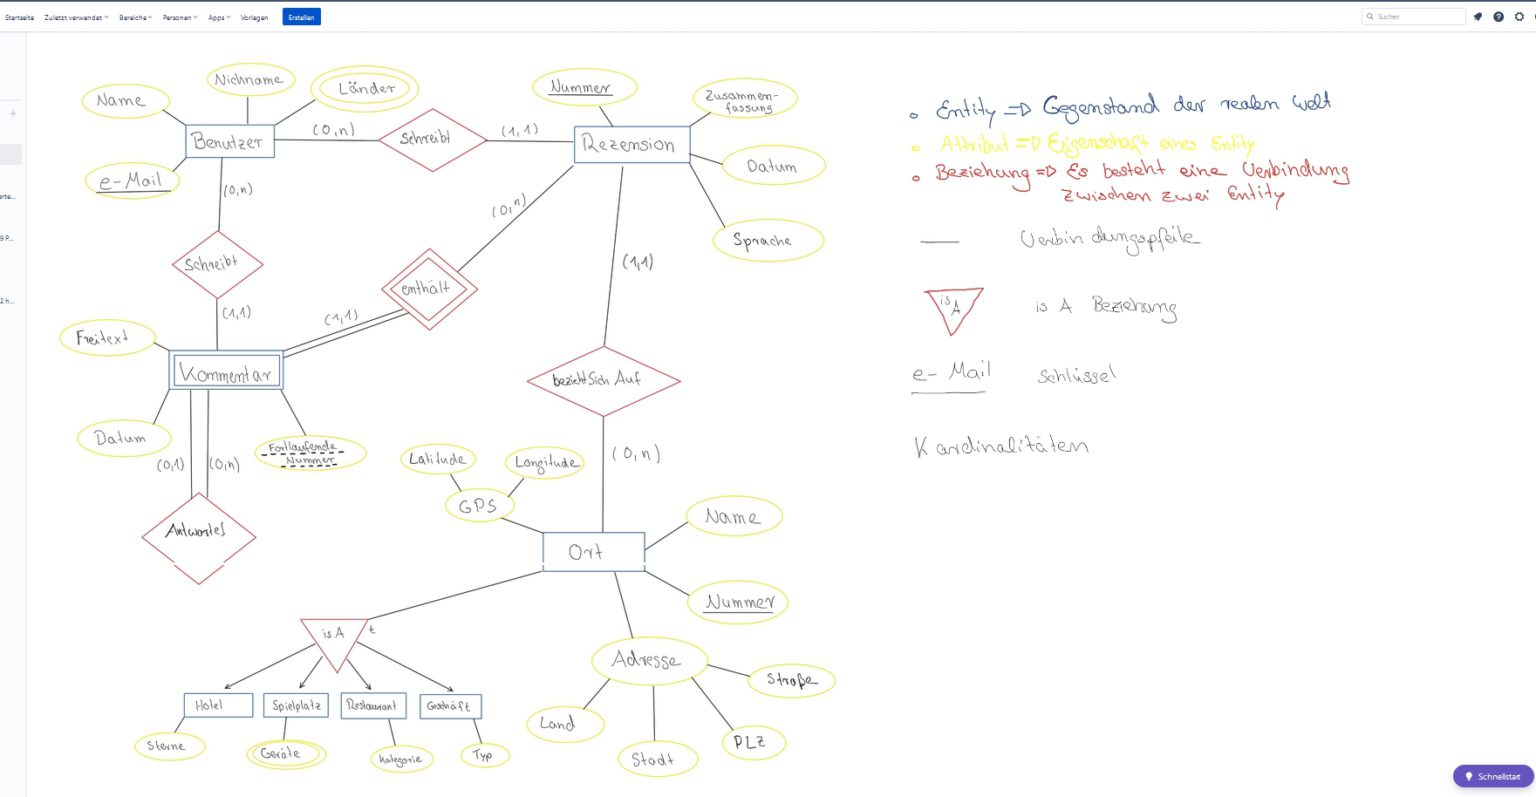 Startseite Zuletzt verwendet Bereiche Personen Apps Vorlagen Erstellen Suchen
Name
Nichname
Länder
e-Mail
Benutzer
(0,n)
Schreibt
(1,1)
Nummer
Zusammen-
fassung
Rezension
Datum
Sprache
(0,n)
Schreibt
(1,1)
(0,n)
enthält
(1,1)
(1,1)
Freitext
Kommentar
Datum
Fortlaufende
Nummer
(0,1)
(0,n)
Antwortet
beziehtSich Auf
(0,n)
Latitude
Longitude
GPS
Ort
Name
Nummer
Adresse
Straße
Land
Stadt
PLZ
is A
t
Hotel
Spielplatz
Restaurant
Geschäft
Sterne
Geräte
Kategorie
Typ
Entity => Gegenstand der realen Welt
Attribut => Eigenschaft eines Entity
Beziehung => Es besteht eine Verbindung
zwischen zwei Entity
Verbindungspfeile
is
A
is A Beziehung
e-Mail
Schlüssel
Kardinalitäten
Schnellstart